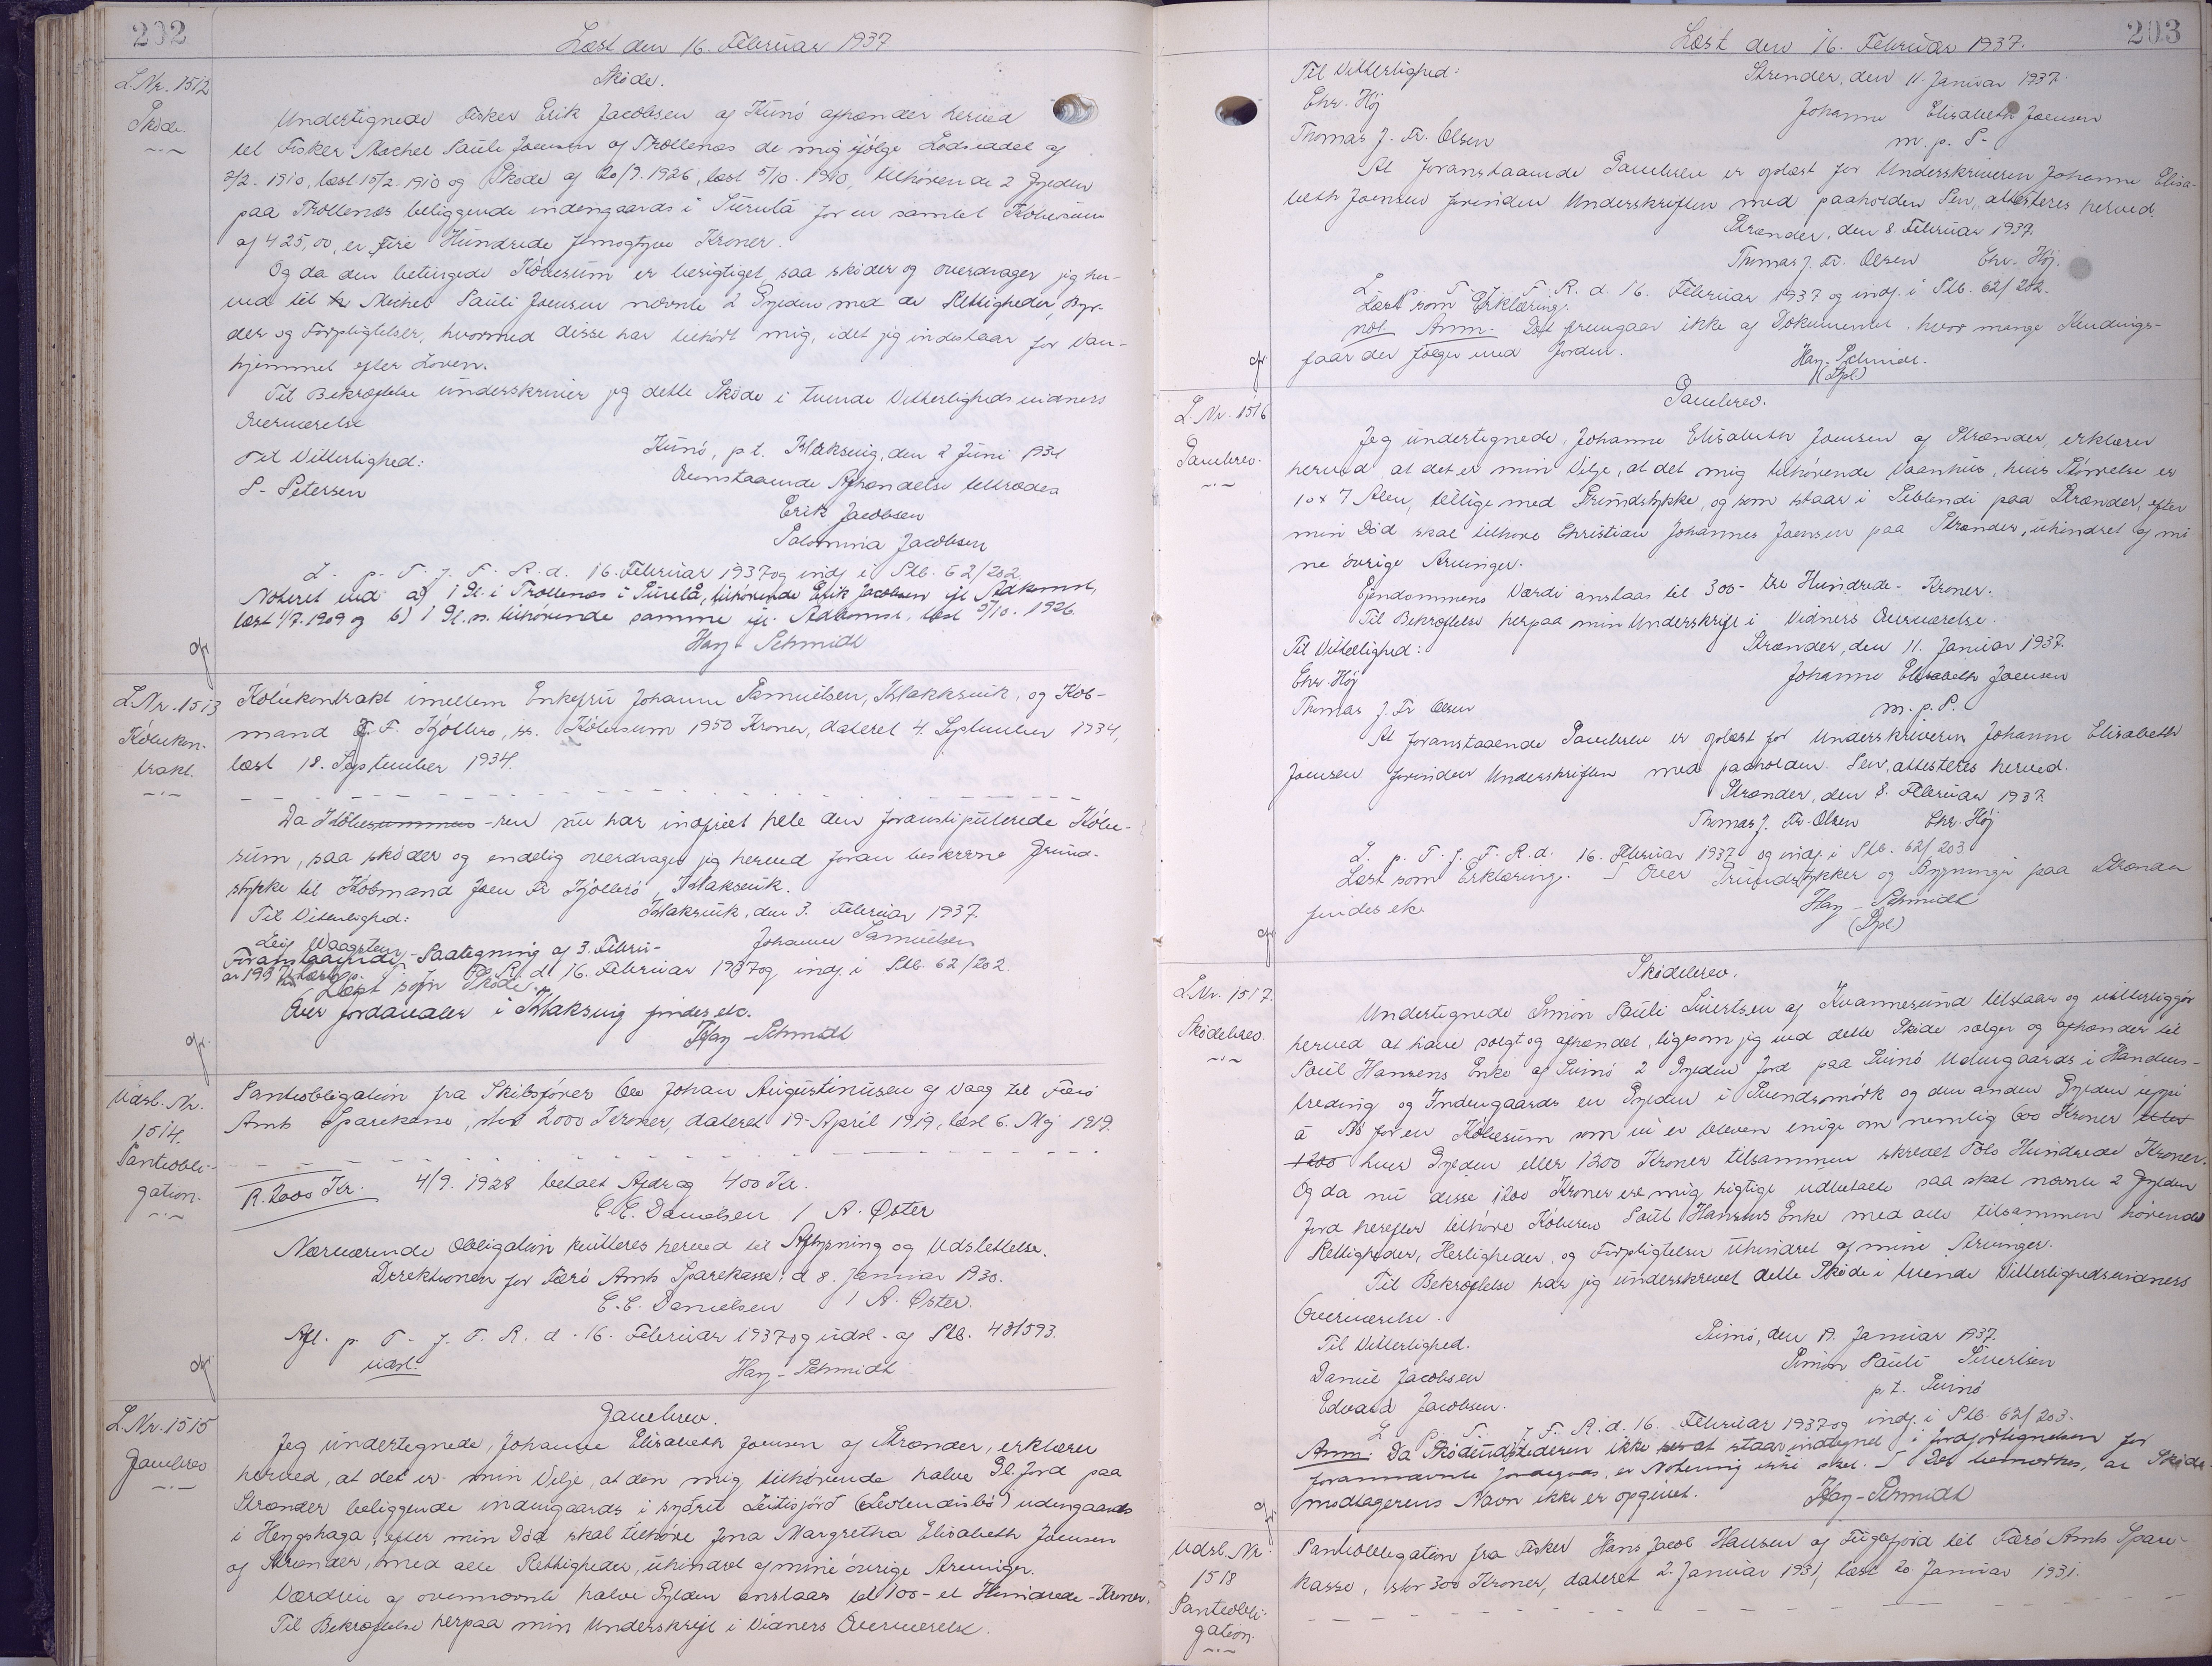 202
Læst den 16. Februar 1937
L. Nr. 1512
Skøde.
Skøde.
Undertignede Fisker Erik Jacobsen af Kunø afhænder herved
til Fisker Michel Pauli Joensen af Trøllenæs de mig ifølge Lodseddel af
2/2. 1910, læst 15/2. 1910 og Skøde af 20/9. 1926, læst 5/10. 1910, tilhørende 2 Gylden
paa Trøllenæs beliggende indengaards i for en samlet Købesum
af 425,00, er Fire Hundrede femogtyve Kroner.
Og da den betingede Købesum er berigtiget saa skøder og overdrager jeg her-
ved til Michel Pauli Joensen nævnte 2 Gylden med de Rettigheder, Byr-
der og Forpligtelser, hvormed disse har tilhørt mig, idet jeg indestaar for Van-
hjemmel efter Loven.
Til Bekræftelse underskriver jeg dette Skøde i tvende Vitterligheds vidners
Overværelse
Kunø, p t. Klaksvig, den 2 Juni 1931
Til Vitterlighed:
Ovenstaaende Afhændelse tiltrædes
S. Petersen
Erik Jacobsen
Jacobsen
L. p. T. f. F. R. d. 16. Februar 1937 og indf i Pb. 62/202.
Noteret ved a) 1 Gl. i Trøllenæs i tilhørende Erik Jacobsen ifl Adkomst,
læst 1/7. 1909 og b) 1 Gl. n. tilhørende samme ifl. Adkomst, læst 5/10. 1926.
Hay-Schmidt
L. Nr. 1513
Købekon-
trakt.
Købekontrakt imellem Enkefru Johanne Samuelsen, Klakksvik, og Køb-
mand J. F. Kjølbro, sr. Købesum 1950 Kroner, dateret 4. September 1934,
læst 18. September 1934.
Da Købesummens -ren nu har indfriet hele den foranstipulerede Købe-
sum, saa skøder og endelig overdrager jeg herved foran beskrevne Grund-
stykke til Købmand Joen Fr Kjølbro, Klaksvik.
Til Vitterlighed:
Klaksvik, den 3. Februar 1937.
Leif Waagstein
Johanne Samuelsen
Foranstaaende Paategning af 3. Febru-
ar 1937 læst p. T. f. F. R. d. 16. Februar 1937 og indf. i Pb. 62/202.
Læst som Skøde.
Over Jordarealer i Klaksvig findes etc.
Hay-Schmidt
Udsl. Nr.
1514.
Pantobli-
gation.
Pantobligation fra Skibsfører Ole Johan Augustinusen af Vaag til Færø
Amts Sparekasse, stor 2000 Kroner, dateret 19. April 1919, læst 6. Maj 1919.
R. 2000 Kr.
4/9. 1928 betalt Afdrag 400 Kr.
C. C. Danielsen / A. Øster
Nærværende Obligation kvitteres herved til Aflysning og Udslettelse.
Direktionen for Færø Amts Sparekasse d 8. Januar 1930.
C. C. Danielsen / A. Øster.
Afl. p. T. f. F. R. d. 16. Februar 1937 og udsl. af Pb. 48/593.
udsl.
Hay-Schmidt
L. Nr. 1515
Gavebrev
Gavebrev.
Jeg undertegnede, Johanne Elisabeth Joensen af Strænder, erklærer
herved, at det er min Vilje, at den mig tilhørende halve Gl. Jord paa
Strænder beliggende indengaards i udengaards
i efter min Død skal tilhøre Jona Margretha Elisabeth Joensen
af Strænder, med alle Rettigheder, uhindret af mine øvrige Arvinger.
Værdien af ovennævnte halve Gylden anslaas til 100- et Hundrede - Kroner.
Til Bekræftelse herpaa min Underskrift i Vidners Overværelse.
203
Læst den 16. Februar 1937.
Til Vitterlighed:
Strænder, den 11. Januar 1937.
Chr. Høj
Johanne Elisabeth Joensen
Thomas J. Fr. Olsen
m. p. P.
At foranstaaende Gavebrev er oplæst for Underskriveren Johanne Elisa-
beth Joensen forinden Underskriften med paaholden Pen, attesteres herved.
Strænder, den 8. Februar 1937.
Thomas J. Fr. Olsen Chr. Høj.
L. p. T. f. F. R. d. 16. Februar 1937 og indf. i Pb. 62/202.
Læst som Erklæring.
not Anm. Det fremgaar ikke af Dokumentet hvor mange Hundings-
faar der følger med Jorden.
Hay-Schmidt.
(Spl)
L. Nr. 1516
Gavebrev.
Gavebrev.
Jeg undertegnede, Johanne Elisabeth Joensen af Strænder, erklærer
herved at det er min Vilje, at det mig tilhørende Vaanhus, hvis Størrelse er
10 x 7 Alen, tillige med Grundstykke, og som staar i paa Strænder, efter
min Død skal tilhøre Christian Johannes Joensen paa Strænder, uhindret af mi
ne øvrige Arvinger.
Ejendommens Værdi anslaas til 300- tre Hundrede - Kroner.
Til Bekræftelse herpaa min Underskrift i Vidners Overværelse.
Til Vitterlighed:
Strænder, den 11. Januar 1937.
Chr. Høj
Johanne Elisabeth Joensen
Thomas J. Fr Olsen
m. p. P.
At foranstaaende Gavebrev er oplæst for Underskriveren Johanne Elisabeth
Joensen forinden Underskriften med paaholden Pen, attesteres herved.
Strænder, den 8. Februar 1937.
Thomas J. Fr. Olsen Chr. Høj
L. p. T. f. F. R. d. 16. Februar 1937 og indf. i Pb. 62/203
Læst som Erklæring. Over Grundstykker og Bygninger paa Strænder
findes etc.
Hay-Schmidt
(Spl)
L. Nr. 1517.
Skødebrev.
Skødebrev.
Undertegnede Simon Pauli Sivertsen af Kvannesund tilstaar og vitterliggør
herved at have solgt og afhændet, ligesom jeg ved dette Skøde sælger og afhænder til
Poul Hansens Enke af Svinø 2 Gylden Jord paa Svinø Udengaards i Handens-
og Indengaards en Gylden i og den anden Gylden uppi
á for en Købesum som vi er bleven enige om nemlig 600 Kroner
1200 hver Gylden eller 1200 Kroner tilsammen skrevet Tolv Hundrede Kroner.
Og da nu disse 1200 Kroner ere mig rigtige udbetalte saa skal nævnte 2 Gylden
Jord herefter tilhøre Køberen Poul Hansens Enke med alle tilsammen hørende
Rettigheder, Herligheder, og Forpligtelser uhindret af mine Arvinger.
Til Bekræftelse har jeg underskrevet dette Skøde i tvende Vitterlighedsvidners
Overværelse.
Svinø, den 19. Januar 1937.
Til Vitterlighed.
Simon Pauli Sivertsen
Daniel Jacobsen
p t. Svinø
Edvard Jacobsen.
L. p. T. f. F. R. d. 16. Februar 1937 og indf. i Pb. 62/203.
Anm. Da Skødeudstederen ikke ses at staar indtegnet i Jordfortegnelsen for
forannævnte Jordegods, er Notering ikke sket. Det bemærkes, at Skøde-
modtagerens Navn ikke er opgivet.
Hay-Schmidt
Udsl. Nr.
1518
Pantobli-
gation.
Pantobligation fra Fisker Hans Jacob Hansen af Fuglefjord til Færø Amts Spare-
kasse, stor 300 Kroner, dateret 2. Januar 1931, læst 20. Januar 1931.